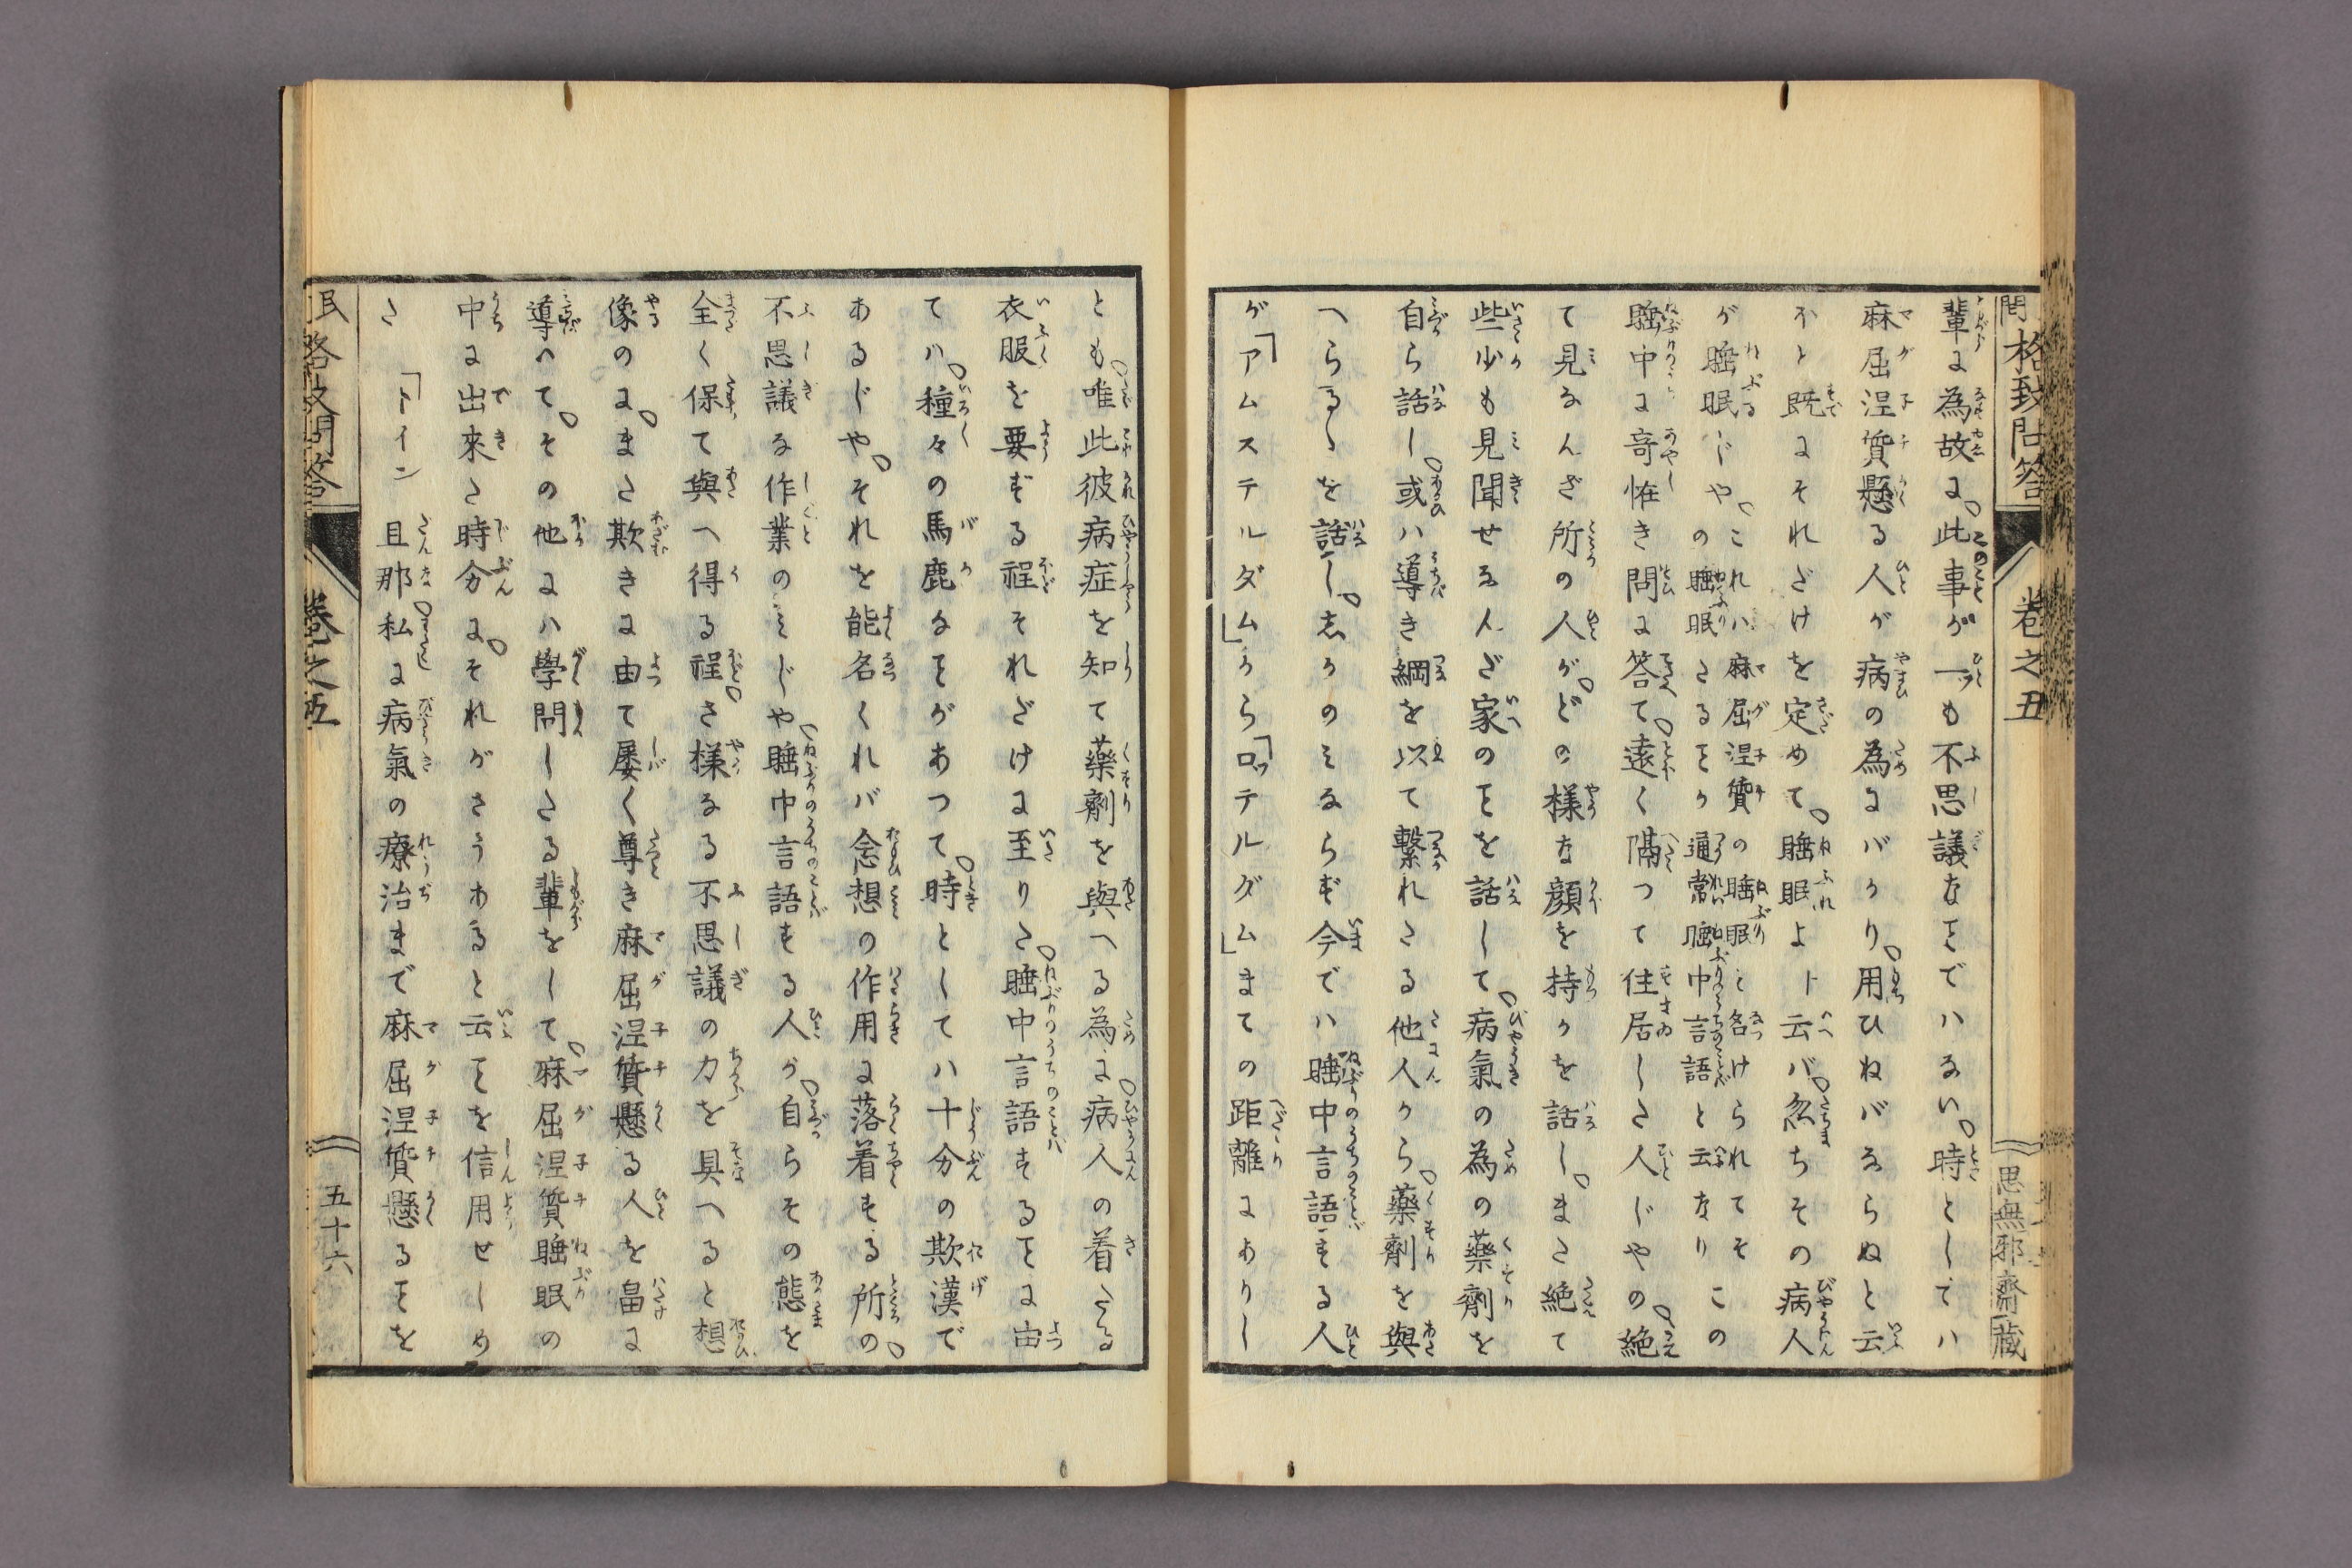 間格致問答
巻之五
思無邪齋藏
輩に為故に此事が一ツも不思議なヿでハない時としてハ
麻屈涅質懸る人が病の為にバかり用ひねバならぬと云
ふと既にそれだけを定めて睡眠よト云バ忽ちその病人
が睡眠じやこれハ麻屈涅質の睡眠と名けられてその睡眠さるヿか通常睡中言語と云なりこの
睡中に奇怪き問に答て遠く隔つて住居した人じやの絶
て見なんだ所の人がどの様な顔を持かを話しまた絶て
些少も見聞せなんだ家のヿを話して病氣の為の藥劑を
自ら話し或ハ導き綱を以て繋れたる他人から藥劑を與
へらるゝを話し志かのみならず今でハ睡中言語する人
が「アムステルダム」から「ロッテルダム」までの距離にありし
とも唯此彼病症を知て藥劑を與へる為に病人の着たる
衣服を要ずる程それだけに至りた睡中言語するヿに由
てハ種々の馬鹿なヿがあつて時としてハ十分の欺漢で
あるじやそれを能名くれバ念想の作用に落着する所の
不思議な作業のみじや睡中言語する人が自らその態を
全く保て與へ得る程さ様なる不思議の力を具へると想
像のにまた欺きに由て屡く尊き麻屈涅質懸る人を畠に
導へてその他にハ學問したる輩をして麻屈涅質睡眠の
中に出來た時分にそれがさうあると云ヿを信用せしめ
た「トイン 且那私に病氣の療治まで麻屈涅質懸るヿを
民格致問答
巻之五
五十六